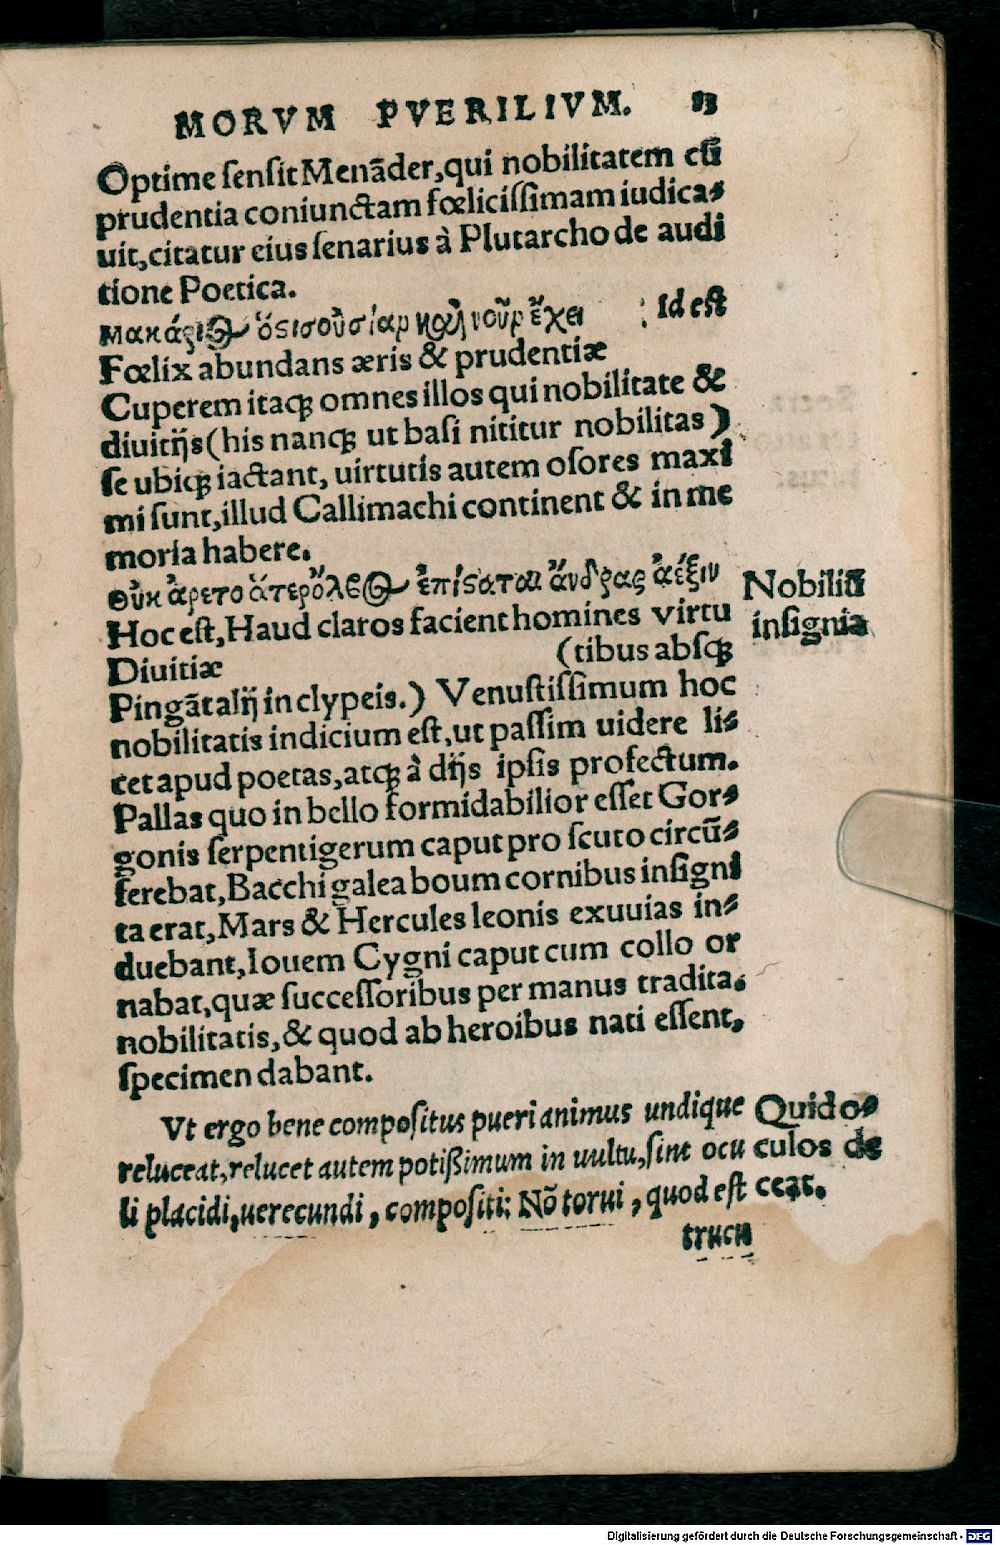 MORVM PVERILIVM. 13
Optime ſenſit Menãder,qui nobilitatem cũ
prudentia coniunctam fœliciſſimam iudica-
uit,citatur eius ſenarius à Plutarcho de audi
tione Poetica.
μακάριος ὅστις οὐσίαν καὶ νοῦν ἔχει : Id eſt
Fœlix abundans æris & prudentiæ
Cuperem itaq; omnes illos qui nobilitate &
diuitijs(his nanq; ut baſi nititur nobilitas)
ſe ubiq; iactant, uirtutis autem oſores maxi
mi ſunt,illud Callimachi continent & in me
moria habere.
οὐκ ἀρετᾶς ἄτερ ὄλβος ἐπίσταται ἄνδρας ἀέξειν
Nobiliũ
inſignia
Hoc eſt,Haud claros facient homines virtu
Diuitiæ (tibus abſq;
Pingãt alij in clypeis.) Venuſtiſſimum hoc
nobilitatis indicium eſt,ut paſſim uidere li-
cet apud poetas,atq; à dijs ipſis profectum.
Pallas quo in bello formidabilior eſſet Gor-
gonis ſerpentigerum caput pro ſcuto circũ-
ferebat,Bacchi galea boum cornibus inſigni
ta erat,Mars & Hercules leonis exuuias in-
duebant,Iouem Cygni caput cum collo or
nabat,quæ ſucceſſoribus per manus tradita.
nobilitatis,& quod ab heroibus nati eſſent,
ſpecimen dabant.
Vt ergo bene compoſitus pueri animus undique
reluceat,relucet autem potißimum in uultu,ſint ocu
li placidi,uerecundi, compoſiti: Nõ torui, quod eſt
Quid o-
culos de
ceat.
trucu
Digitalisierung gefördert durch die Deutsche Forschungsgemeinschaft - DFG